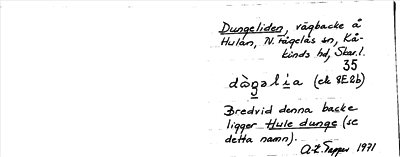 Dungeliden, vägbacke å
Hulan, N. Fågelås sn, Kå-
kinds hd, Skar.l.
35
dòŋəlia (ek 8E2b)
Bredvid denna backe
ligger Hule dunge (se
detta namn).
1971